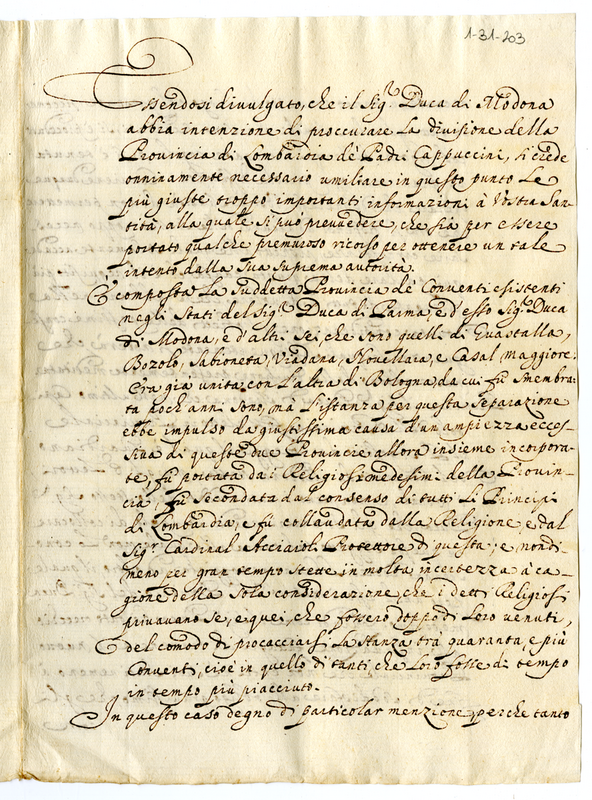 1-31-203
Essendosi divulgato, che il Sig.r Duca di Modona
abbia intenzione di proccurare la divisione della
Provincia di Lombardia de' Padri Cappuccini, si crede
onninamente necessario umiliare in questo punto le
più giuste troppo importanti informazioni a Vostra San-
tità, alla quale si può prevvedere, che sia per essere
portato qualche premuroso ricorso per ottenere un tale
intento dalla sua suprema autorità.
È composta la suddetta Provincia de' Conventi esistenti
negli Stati del Sig.r Duca di Parma, e d'esso Sig.r Duca
di Modona, e d'altri sei, che sono quelli di Guastalla,
Bozolo, Sabioneta, Viadana, Novellara, e Casal Maggiore.
Era già unita con l'altra di Bologna, da cui fù smembra-
ta poch'anni sono, mà l'istanza per questa separazione
ebbe impulso da giustissima causa d'un ampiezza ecces-
siva di queste due Provincie allora insieme incorpora-
te, fù portata dai Religiosi medesimi della Provin-
cia, fù secondata dal consenso di tutti li Principi
di Lombardia, e fù collaudata dalla Religione, e dal
Sig.r Cardinal Acciaioli Protettore di questa; e nondi-
meno per gran tempo stette in molta incertezza a ca-
gione della sola considerazione, che i detti Religiosi
privavano se, e quei, che fossero doppo di loro venuti,
del comodo di procacciarsi la stanza trà quaranta, e più
Conventi, cioè in quello di tanti, che loro fosse di tempo
in tempo più piacciuto.
In questo caso degno di particolar menzione, perche tanto